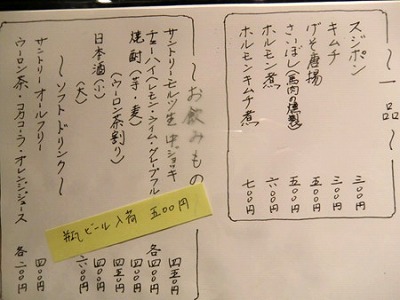 〜一品〜
スジポン 三〇〇円
キムチ 三〇〇円
げそ唐揚 五〇〇円
さいぼし(馬肉の燻製) 五〇〇円
ホルモン煮 六〇〇円
ホルモンキムチ煮 七〇〇円
〜お飲みもの〜
サントリーモルツ生中ジョッキ 四五〇円
チューハイ(レモン・ライム・グレープフル 各四〇〇円
焼酎(芋・麦) 四〇〇円
(ウーロン茶割り) 四五〇円
日本酒(小) 四〇〇円
(大) 六〇〇円
〜ソフトドリンク〜
サントリーオールフリー 四〇〇円
ウーロン茶・コカコーラ・オレンジジュース 各二〇〇円
瓶ビール入荷 五〇〇円